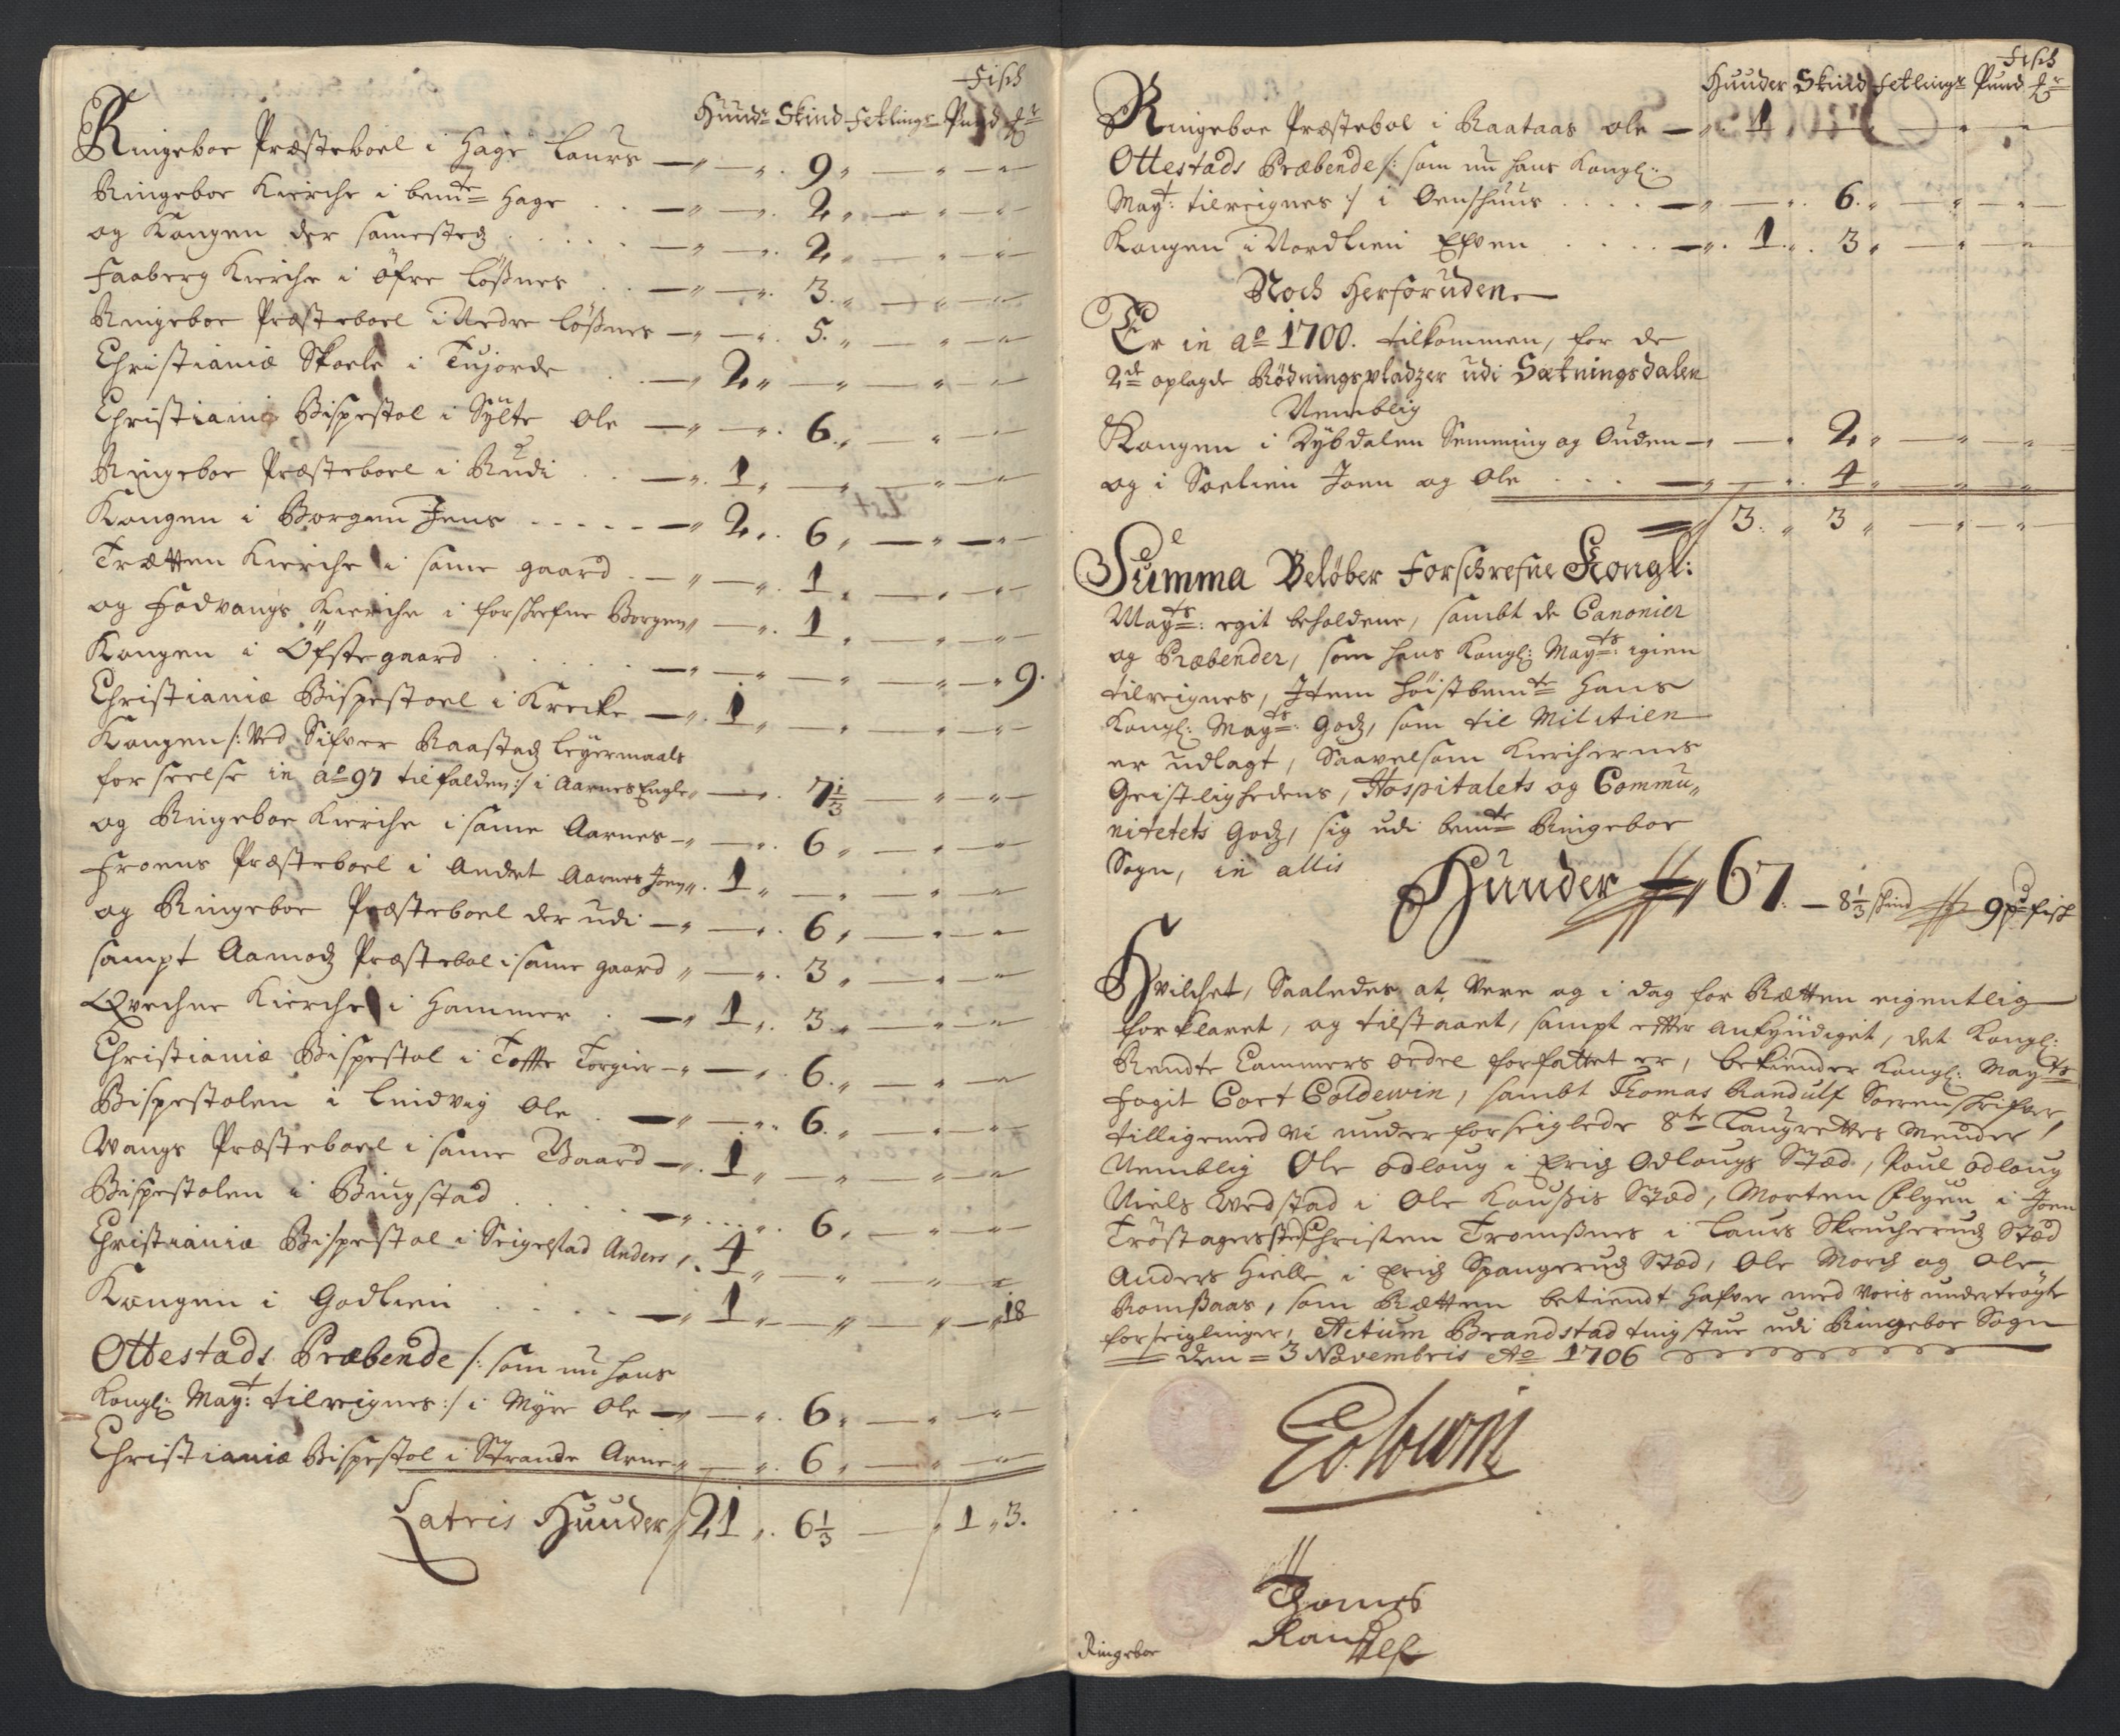 Fisch
Hund: Skind Fetlings Pund
Ringeboe Præsteboel i Hage Laurs — „ — „ 9 „ — „ — „
Ringeboe Kierche i bemte Hage . . — „ — „ 2 „ — „ — „
og Kongen der samestedz . . . . — „ — „ 2 „ — „ — „
Faaberg Kierche i Öfre Lößnes . . — „ — „ 3 „ — „ — „
Ringeboe Præsteboel i Nedre Lößnes — „ — „ 5 „ — „ — „
Christianiæ Skoele i Tujorde . — „ 2 „ — „ — „ — „
Christianiæ Bispestol i Sylte Ole — „ — „ 6 „ — „ — „
Ringeboe Præsteboel i Rudi . . — „ 1 „ — „ — „ — „
Kongen i Borgen Jens . . . . . — „ 2 „ 6 „ — „ — „
Trætten Kierche i same gaard . — „ — „ 1 „ — „ — „
og Fodvangs Kierche i forschrefne Borgen „ — „ 1 „ — „ — „
Kongen i Öfstegaard . . . . . — „ — „ — „ — „ 9.
Christianiæ Bispestoel i Krecke — „ 1 „ — „ — „ — „
Kongen /: Ved Sifver Raastadz Leyermaals
forseelse in ao 97 tilfalden :/ i Aarnes Engle „ — „ 7 1/3 — „ — „
og Ringeboe Kierche i same Aarnes — „ — „ 6 „ — „ — „
Froens Præsteboel i Andet Aarnes Joen „ 1 „ — „ — „ — „
og Ringeboe Præsteboel der udi — „ — „ 6 „ — „ — „
sampt Aamodz Præstebol i same gaard „ — „ 3 „ — „ — „
Qvechne Kierche i Hammer . — „ 1 „ 3 „ — „ — „
Christianiæ Bispestol i Toffte Torgier — „ — „ 6 „ — „ — „
Bispestolen i Lindvig Ole . — „ — „ 6 „ — „ — „
Wangs Præsteboel i same Gaard — „ 1 „ — „ — „ — „
Bispestolen i Bingstad . . . . — „ . . . „ 6 „ — „ — „
Christianiæ Bispestol i Seigelstad Anders „ 4 „ — „ — „ — „
Kongen i Godlien . . . . — „ 1 „ — „ — „ 18
Ottestads Præbende /: som nu hans
Kongl: May: tilreignes :/ i Myre Ole — „ — „ 6 „ — „ — „
Christianiæ Bispestol i Strande Arne „ — „ 6 „ — „ — „
Latris Hunder 21 „ 6 1/3 — 1 „ 3.
Fisch
Hunder Skind Fetlings Pund
Ringeboe Præstebol i Raataas Ole — „ 1 „ — „ — „
Ottestads Præbende /: som nu hans Kongl:
May: tilreignes :/ i Oenshuus . . . . — „ — „ 6 „ — „ — „
Kongen i Nordlien Efven . . . . — „ 1 „ 3 „ — „ — „
Noch Herforuden
Er in ao 1700. tilkommen, for de
2de oplagde Rödningspladzer udi Sætningsdalen
Nemblig
Kongen i Dybdalen Semming og Ouden — „ — „ 2 „ — „ — „
og i Soelien Joen og Ole . . . — „ — „ 4 „ — „ — „
3 „ 3 „ — „ — „
Summa Beløber forschrefne Kongl:
Mayts: egit beholdene, sambt de Canonier
og Præbender, som hans Kongl: Mayts: igien
tilreignes, Item höistbemte Hans
Kongl: Mayts: Godz, som til Militien
er udlagt, Saavelsom Kierchernes
Geistlighedens, Hospitalets og Commu„
nitetets Godz, sig udi bemte Ringeboe
Sogn, in allis
Hunder 67. — 8 1/3 skind 9 pd fisch
Hvilchet, Saaledes at Være og i dag for Rætten eigentlig
forklaret, og tilstaaet, sampt effter ankyndiget, det Kongl:
Rendte Cammers ordre forfattet er, bekiender Kongl: Mayts
fogit Cort Coldewin, sambt Thomas Randulf Sorenskrifver
tilligemed Vi underforseiglede 8te Laugrettes Mender,
Nemblig Ole Odloug i Erich Odlougs Stæd, Poul Odloug
Niels Wedstad i Ole Kaußis Stæd, Morten Flyen i Joen
Tröstagers stæd Christen Tromßnes i Laurs Skrucherud Stæd
Anders Hielle i Erich Spangerud Stæd, Ole Morch og Ole
Romßaas, som Rætten betiendt hafver med Voris undertrögte
forseiglinger, Actum Brandstad tingstue udi Ringeboe Sogn
den = 3 Novembris Ao 1706
Coldewin
Thomes
Randulf
Ringeboe